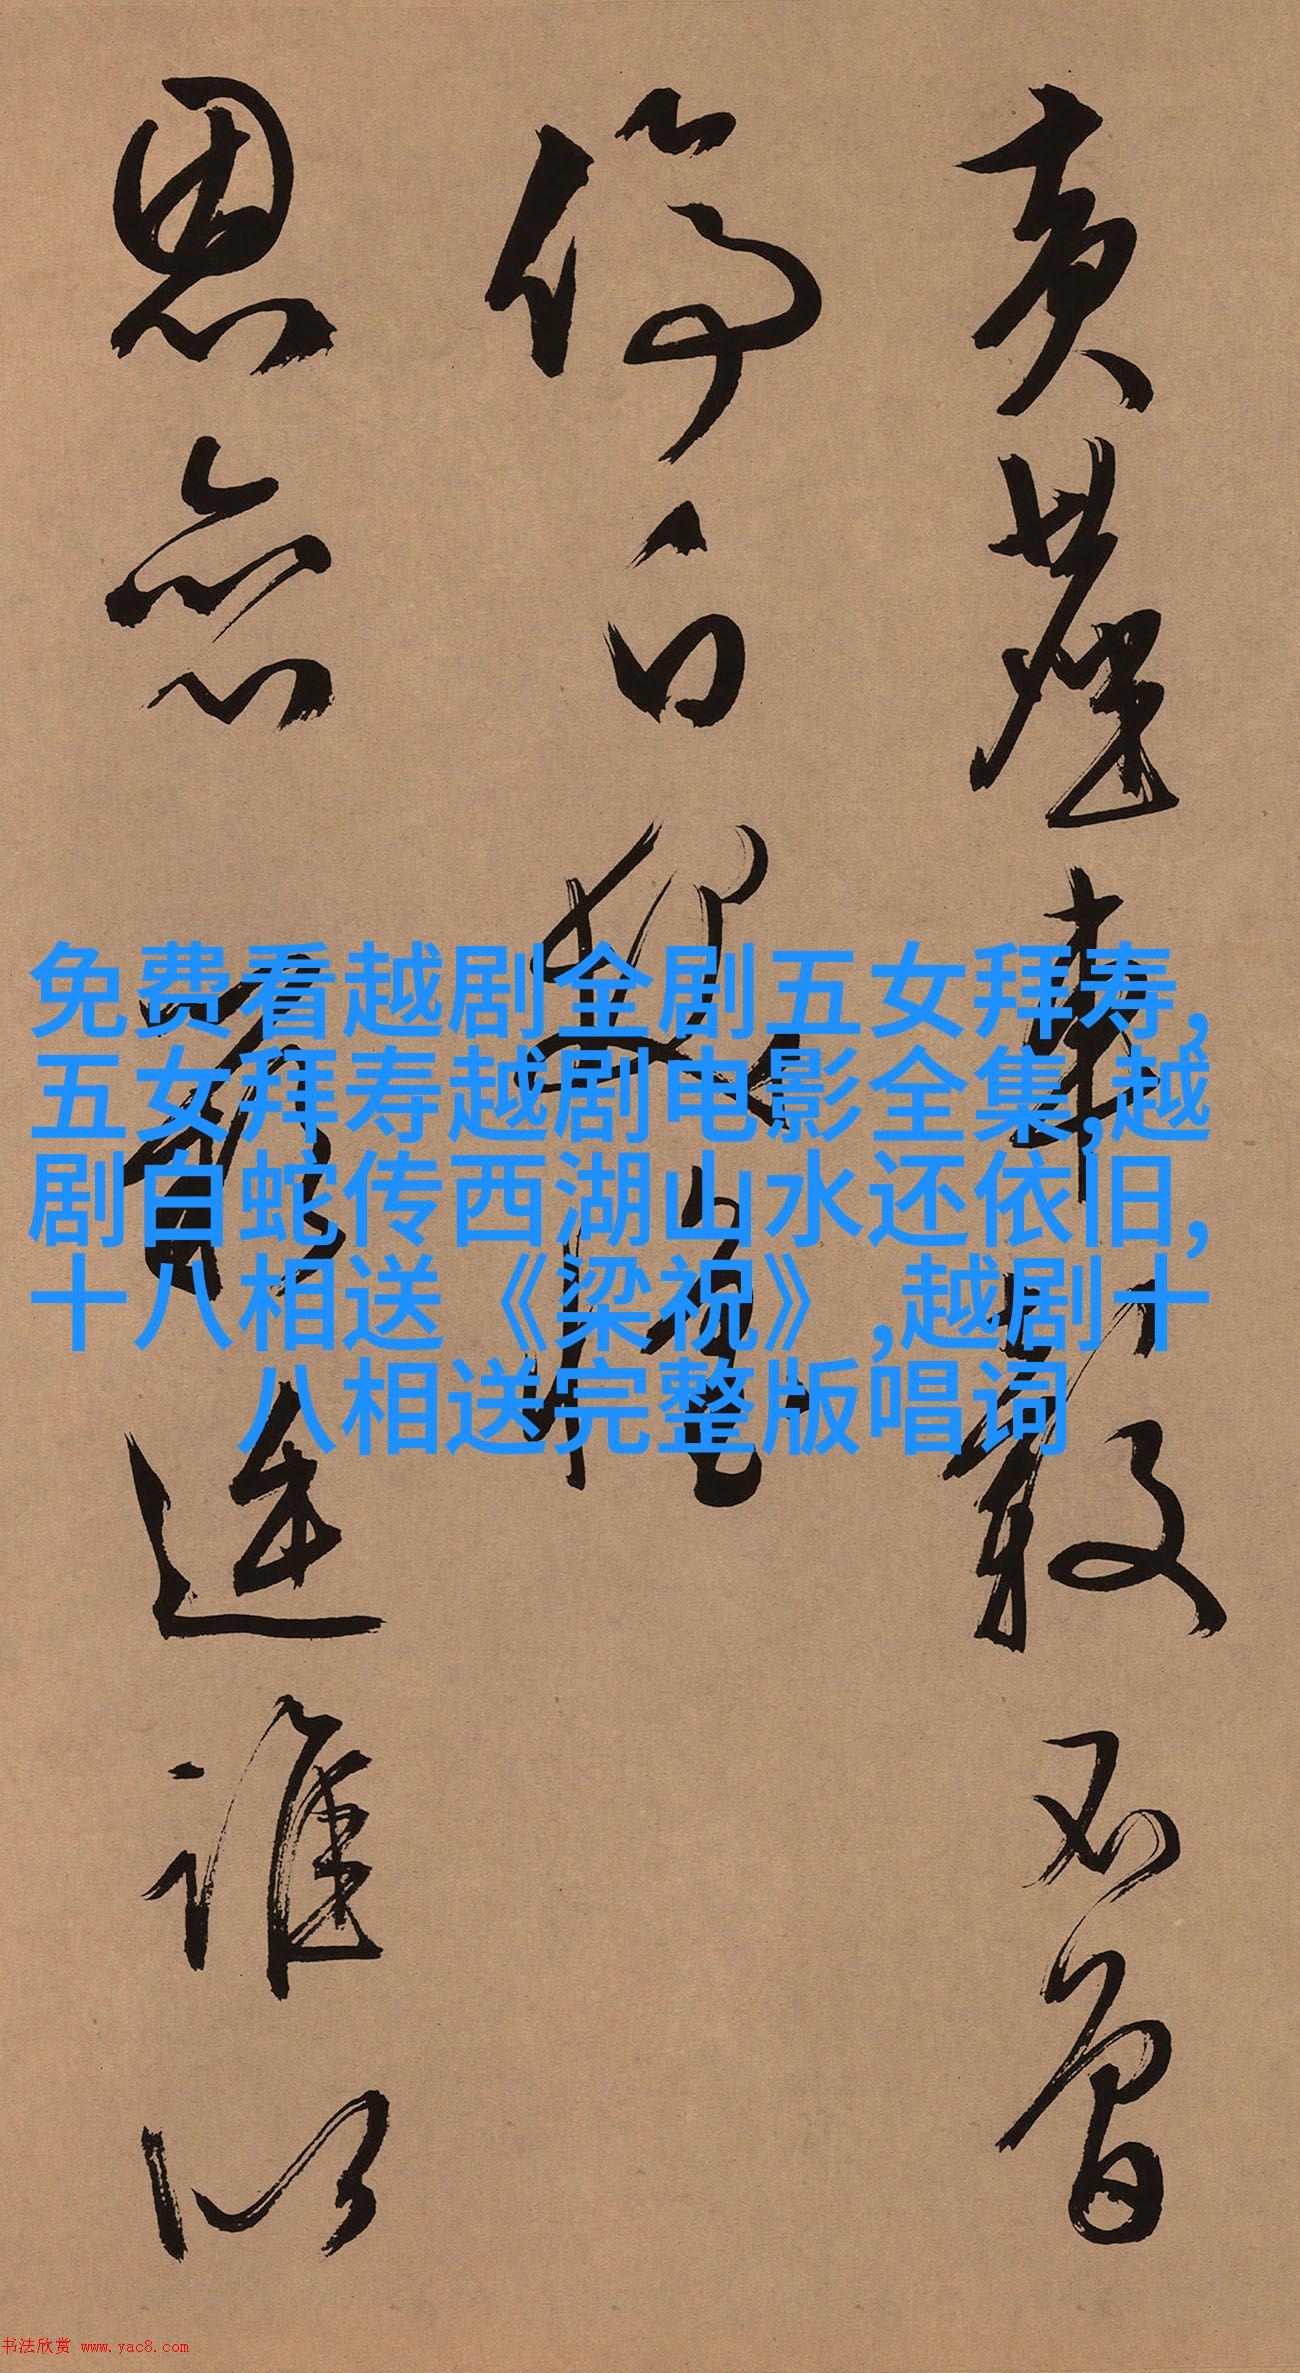 黄塵車轂不曾
停白髮
恩誰似
免费看越剧全剧五女拜寿,
五女拜寿越剧电影全集,越
剧白蛇传西湖山水还依旧,
十八相送《梁祝》,越剧十
八相送完整版唱词
书法欣赏 www.yac8.com